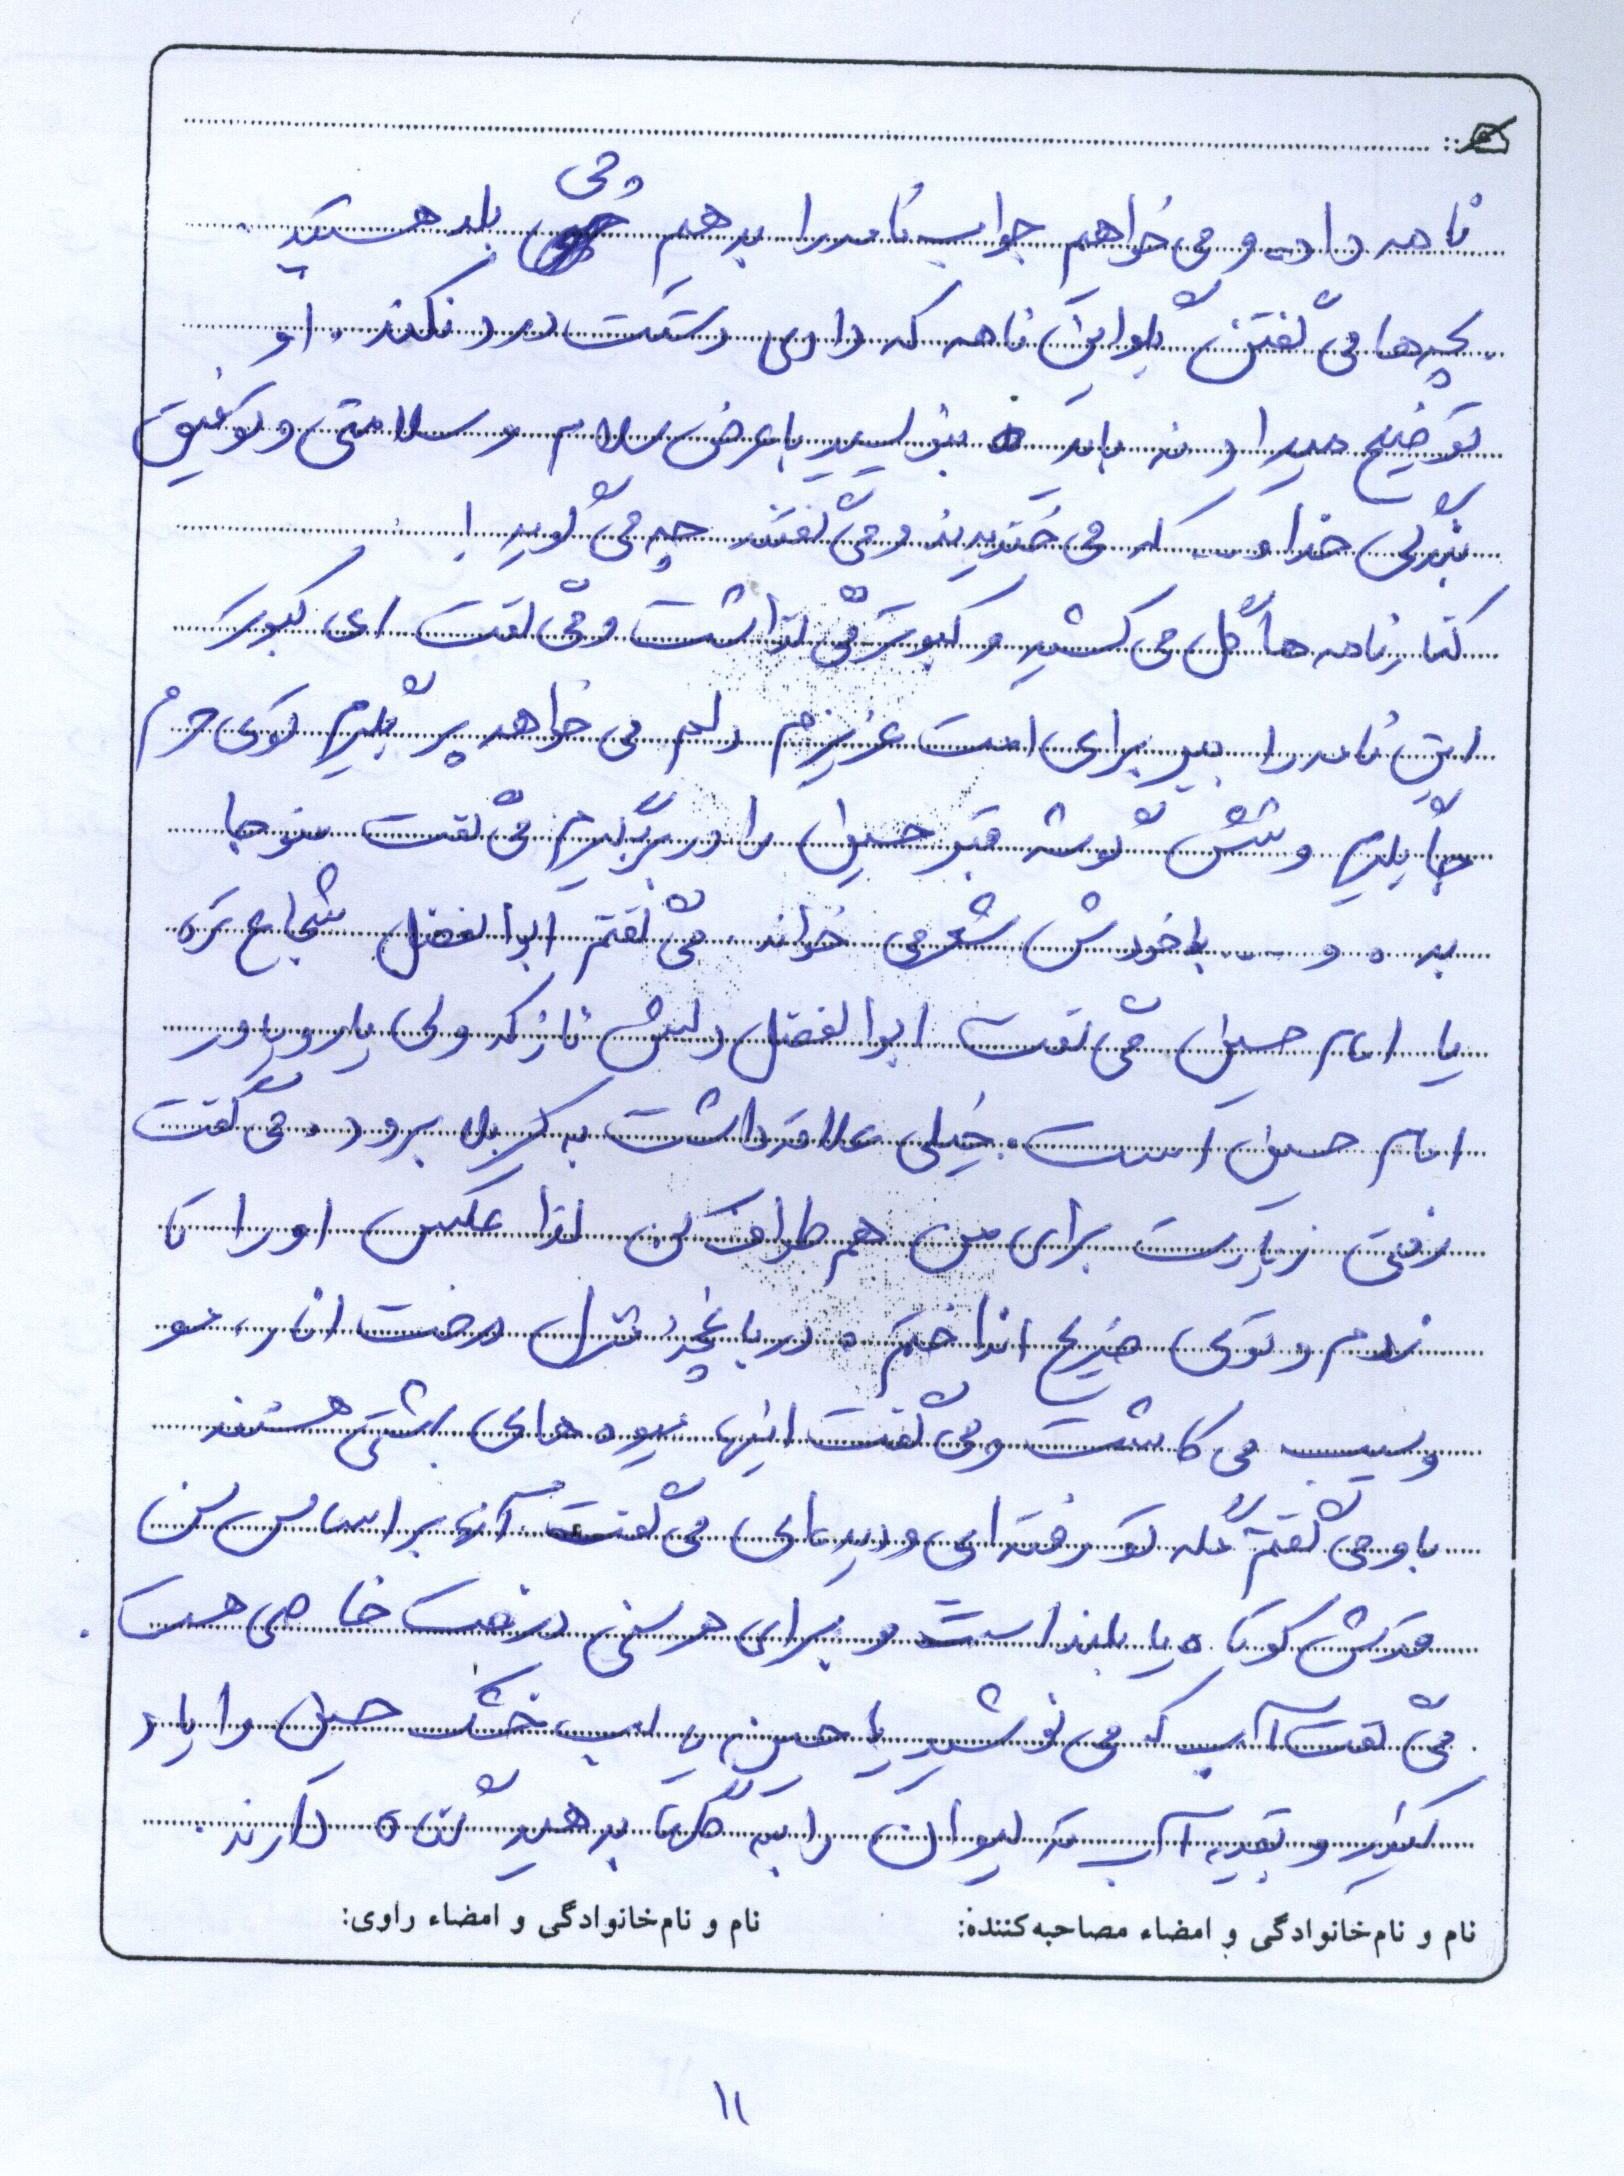 نامه داده و می‌خواهم جواب نامه را بدهم چی بلد هستید
بچه‌ها می‌گفتن بگو این نامه که دادی دستت درد نکند. او
توضیح میداد نه باید بنویسید با عرض سلام و سلامتی و توفیق
بندگی خدا و ... که می‌خندیدند و می‌گفتند چه می‌گوید!
کنار نامه ها گل می‌کشید و کبوتر می‌گذاشت و می‌گفت ای کبوتر
این نامه را ببر برای است عزیزم دلم می‌خواهد پر بگیرم توی حرم
جا بگیرم و شش گوشه قبر حسین را در بر بگیرم می‌گفت منو جا
بده و ... با خودش شعر می خواند. می‌گفتم ابوالفضل شجاع تره
یا امام حسین می‌گفت ابوالفضل دلش نازکه ولی یار و یاور
امام حسین است. خیلی علاقه داشت به کربلا برود. می‌گفت
رفتی زیارت برای من هم طواف کن لذا عکس او را تا
زدم و توی ضریح انداختم. در باغچه منزل درخت انار، مو
و سیب می کاشت و می‌گفت اینها میوه های بهشتی هستند
با و می‌گفتم مگه تو رفته ای و دیده‌ای می‌گفت آنها بر اساس سن
قدش کوتاه یا بلند است و برای هر سنی درخت خاصی هست.
می‌گفت آب که می نوشید یا حسین یا لب خشک حسین را یاد
کنید و بقیه آب ته لیوان را به گلها بدهید گناه دارند.
نام و نام‌خانوادگی و امضاء مصاحبه‌کننده: نام و نام‌خانوادگی و امضاء راوی:
۱۱